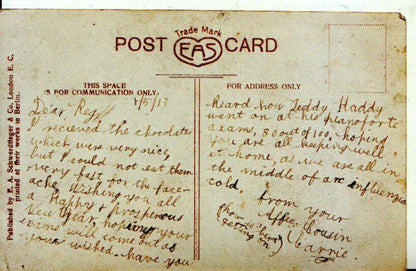 Trade Mark
POST CARD
EAS
THIS SPACE
IS FOR COMMUNICATION ONLY.
FOR ADDRESS ONLY
Published by E. A. Schwerdtfeger & Co. London E. C.
printed at their works in Berlin.
1/5/13
Dear Reg
I recieved the chocolates
which were very nice,
but I could not eat them
very fast for the face-
ache. Wishing you all
a Happy & prosperous
New Year, hoping your
exams will come out as
your wished. Have you
Heard how Teddy Haddy
went on at his pianoforte
exams, 80 out of 100, hoping
you are all keeping well
at home, as we are all in
the middle of an influenzia
cold. from your
Affec. Cousin
Carrie.